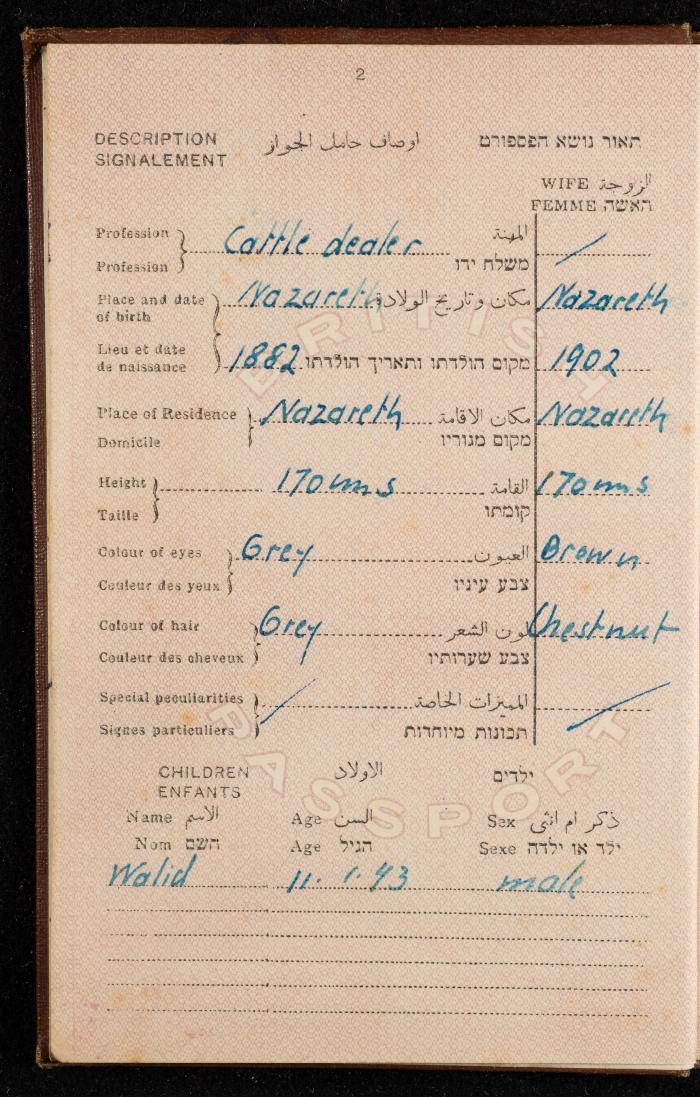 2
DESCRIPTION اوصاف حامل الجواز תאור נושא הפספורט
SIGNALEMENT
WIFE الزوجة
FEMME האשה
Profession Cattle dealer المهنة /
Profession משלח ידו
Place and date of birth Nazareth مكان وتاريخ الولادة Nazareth
Lieu et date de naissance 1882 מקום הולדתו ותאריך הולדתו 1902
Place of Residence Nazareth مكان الاقامة Nazareth
Domicile מקום מגוריו
Height 170 cms القامة 170 cms
Taille קומתו
Colour of eyes Grey العيون Brown
Couleur des yeux צבע עיניו
Colour of hair Grey لون الشعر Chestnut
Couleur des cheveux צבע שערותיו
Special peculiarities / المميزات الخاصة /
Signes particuliers תכונות מיוחדות
BRITISH PASSPORT
CHILDREN الاولاد ילדים
ENFANTS
Name الاسم Age السن Sex ذكر ام انثى
Nom השם Age הגיל Sexe ילד או ילדה
Walid 11. 1. 43 male